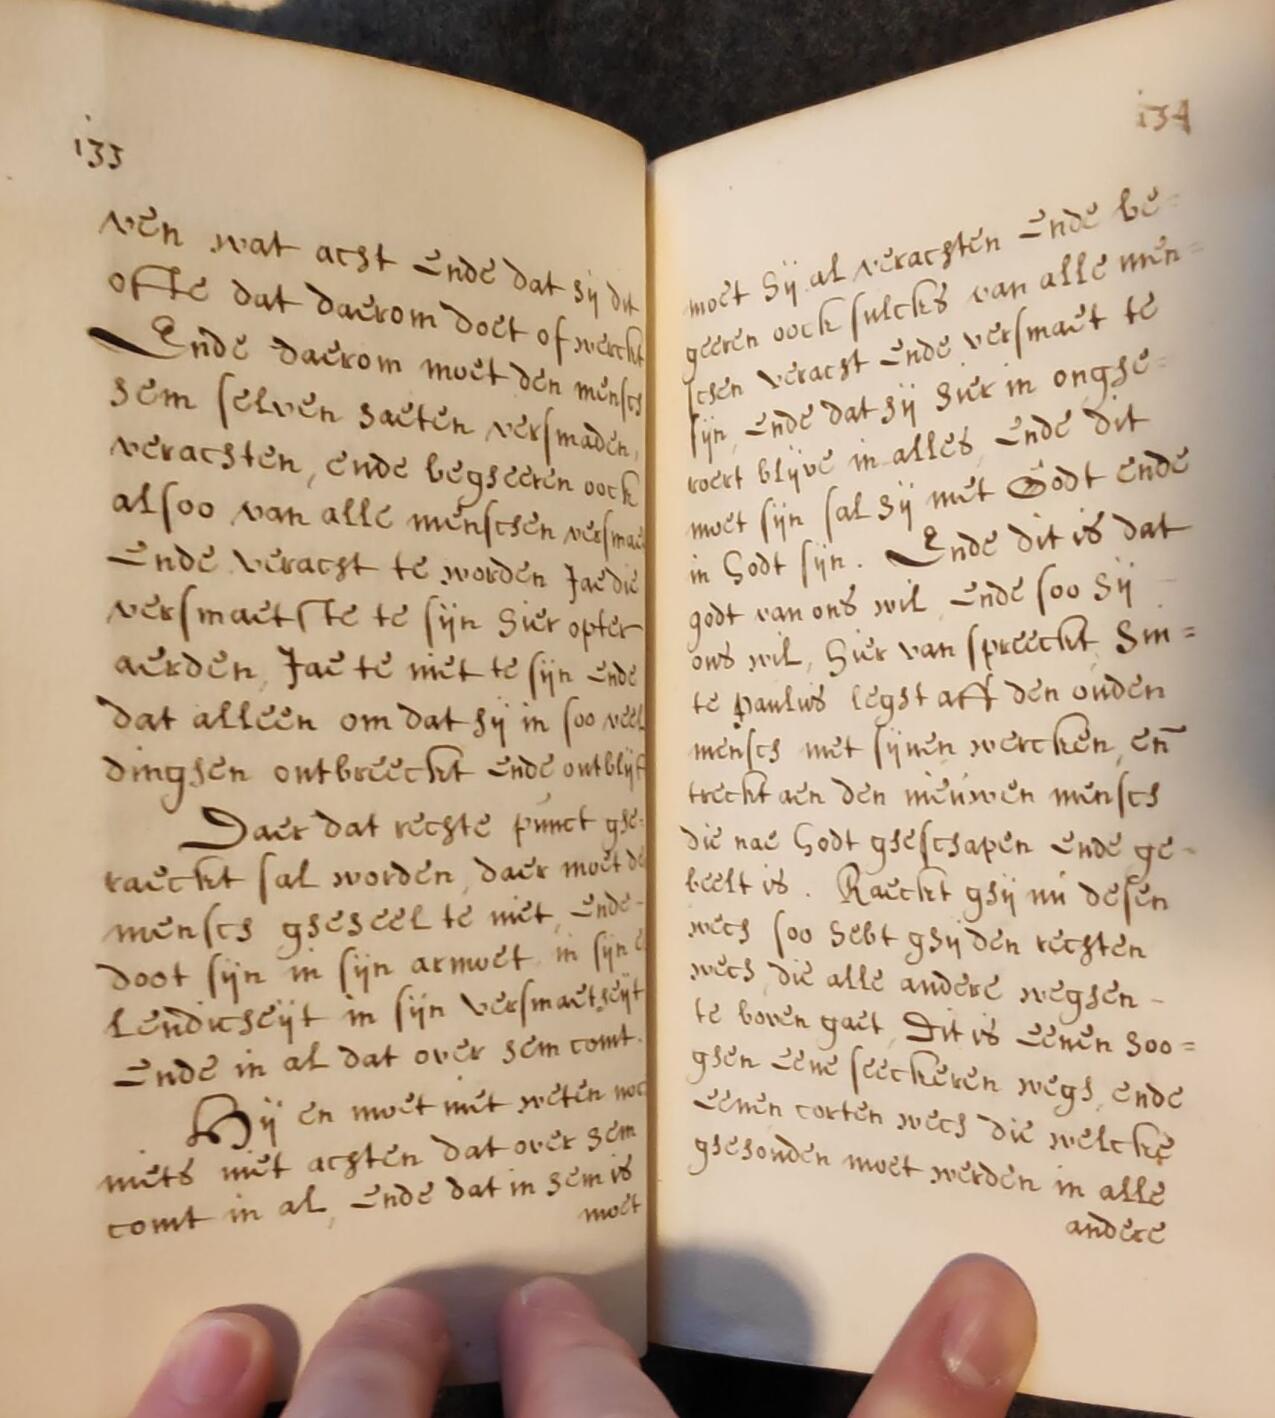 133
ven wat acht Ende dat hij dit
ofte dat daerom doet of werckt
Ende daerom moet den mensch
hem selven haeten versmaden,
verachten, ende begheeren oock
alsoo van alle menschen versmae
Ende veracht te worden Jae die
versmaetste te sijn hier opter
aerden, Jae te niet te sijn Ende
dat alleen om dat hij in soo veel
dinghen ontbreeckt Ende ontblijft
Daer dat rechte punct ghe-
raeckt sal worden, daer moet de
mensch gheheel te niet, Ende-
doot sijn in sijn armoet in sijn e
lendicheijt in sijn versmaetheijt
Ende in al dat over hem comt.
Hij en moet niet weten noch
niets niet achten dat over hem
comt in al, Ende dat in hem is
moet
134
moet hij al verachten Ende be=
geeren oock sulcks van alle men=
schen veracht Ende versmaet te
sijn, Ende dat hij hier in onghe=
roert blijve in alles, Ende dit
moet sijn sal hij met Godt Ende
in Godt sijn. Ende dit is dat
godt van ons wil Ende soo hij
ons wil, hier van spreeckt Sin=
te paulus leght aff den ouden
mensch met sijnen wercken, eñ
treckt aen den nieuwen mensch
die nae Godt gheschapen Ende ge-
beelt is. Raeckt ghij nú desen
wech soo hebt ghij den rechten
wech, die alle andere weghen-
te boven gaet, Dit is Eenen hoo=
ghen Eene seeckeren wegh, Ende
Eenen corten wech die welcke
ghesonden moet werden in alle
andere